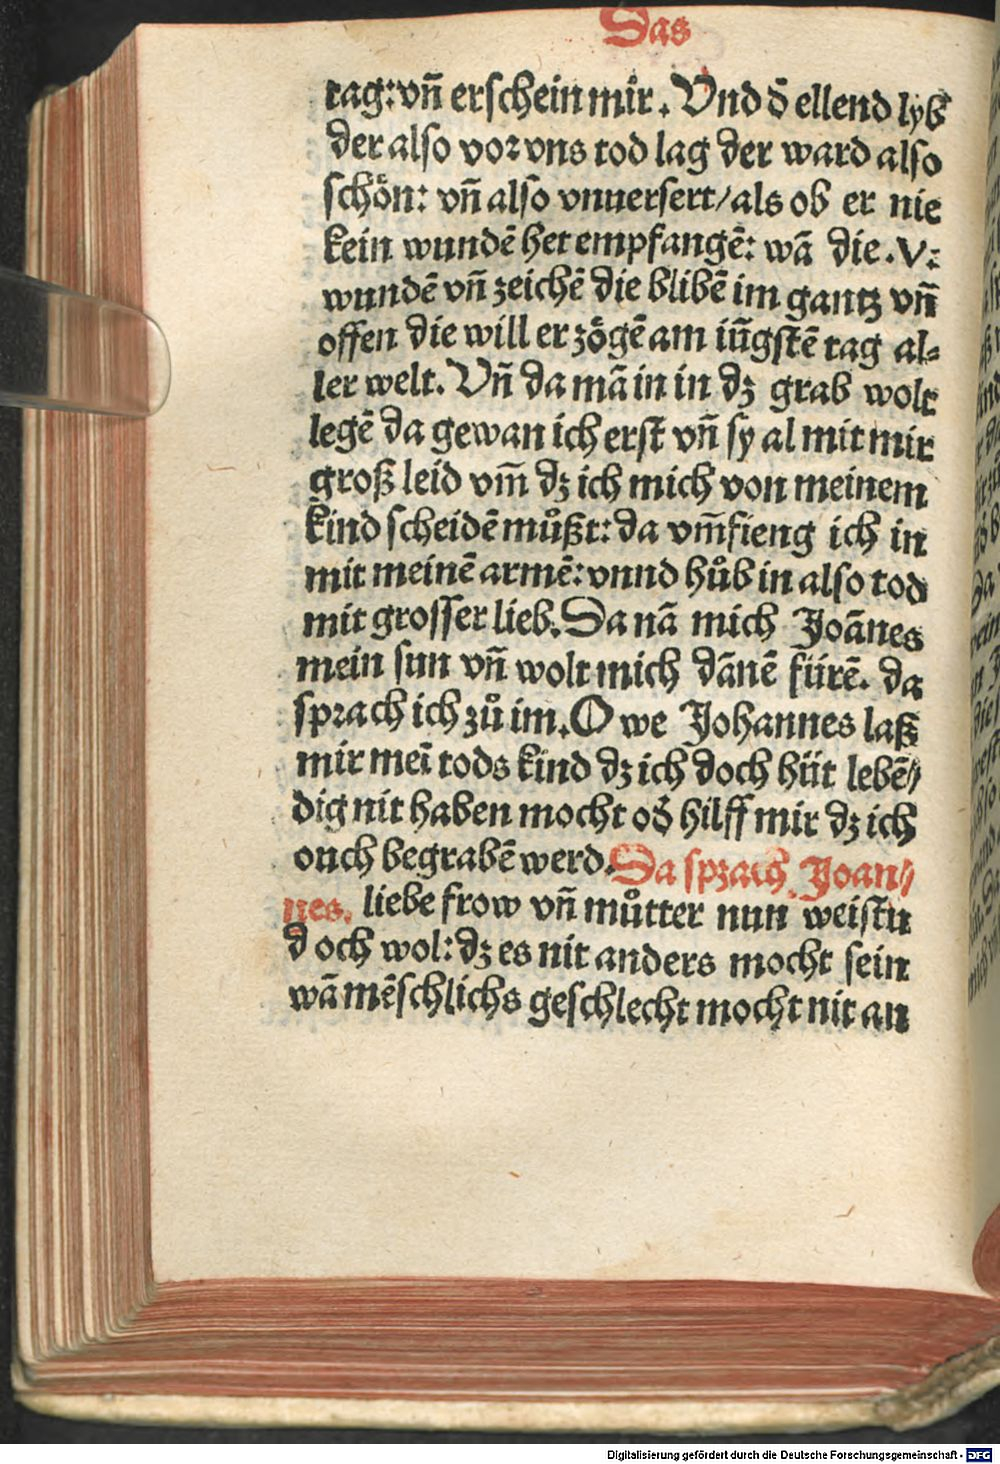 Das
tag: vñ erschein mir. Vnd d̄ ellend lyb
der also vor vns tod lag der ward also
schön: vñ also vnuersert/als ob er nie
kein wundē het empfangē: wā die .v.
wundē vñ zeichē die blibē im gantz vñ
offen die will er zögē am iüngstē tag al⸗
ler welt. Vñ da mā in in dz grab wolt
legē da gewan ich erst vñ sy al mit mir
groß leid vm̄ dz ich mich von meinem
kind scheidē můßt: da vm̄fieng ich in
mit meinē armē: vnnd hůb in also tod
mit grosser lieb. Da nā mich Joānes
mein sun vñ wolt mich dānē fürē. da
sprach ich zů im. O we Johannes laß
mir meī tods kind dz ich doch hüt lebē⸗
dig nit haben mocht od̄ hilff mir dz ich
ouch begrabē werd. Da sprach Joan⸗
nes. liebe frow vñ můtter nun weistu
doch wol: dz es nit anders mocht sein
wā mēschlichs geschlecht mocht nit an
Digitalisierung gefördert durch die Deutsche Forschungsgemeinschaft - DFG